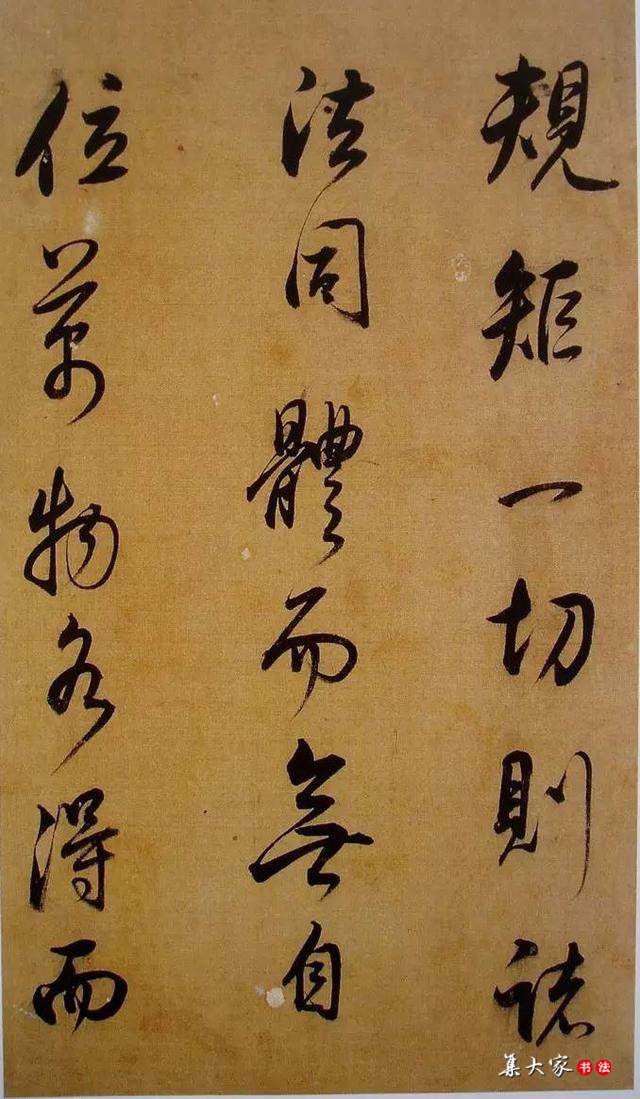 規矩一切則諸
法同體而無自
位萬物各得而
集大家书法